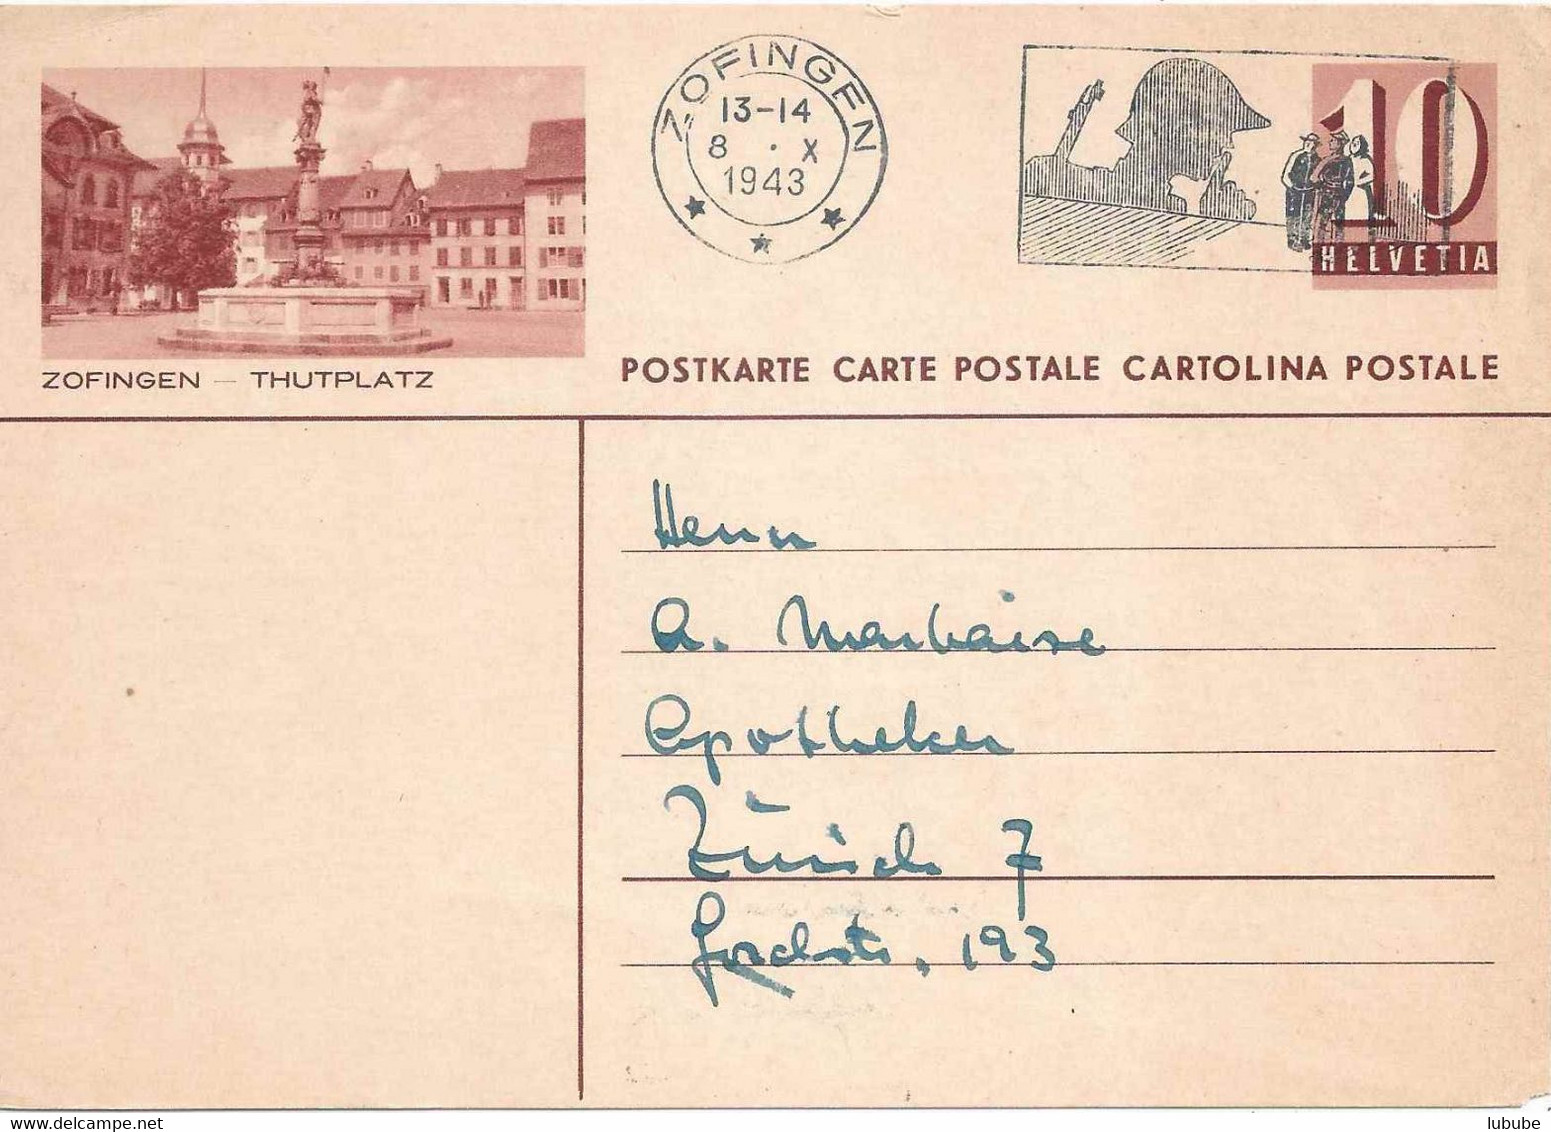 ZOFINGEN
13-14
8 . X
1943
10
HELVETIA
ZOFINGEN — THUTPLATZ
POSTKARTE CARTE POSTALE CARTOLINA POSTALE
Herrn
A.
Apotheker
Zürich 7
Forchstr. 193
lubube
www.delcampe.net